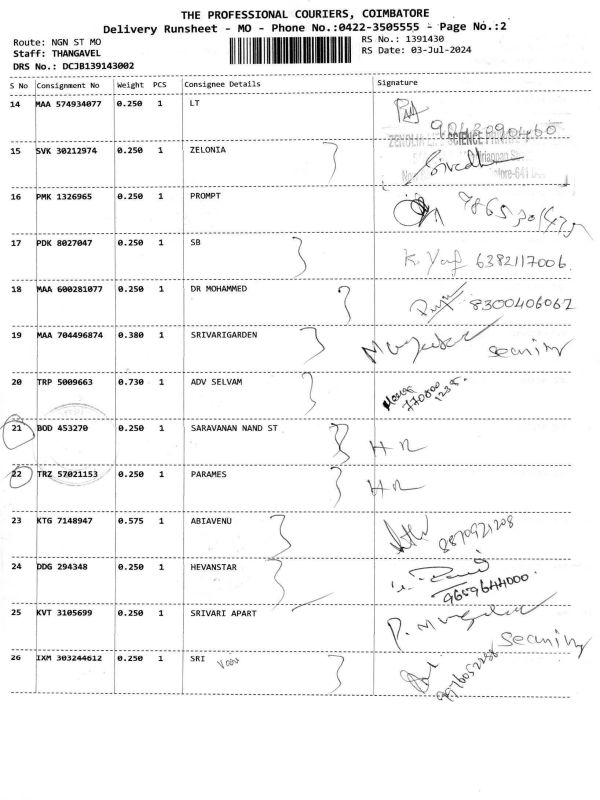 THE PROFESSIONAL COURIERS, COIMBATORE
Delivery Runsheet - MO - Phone No.:0422-3505555 - Page No.:2
Route: NGN ST MO
RS No.: 1391430
Staff: THANGAVEL
RS Date: 03-Jul-2024
DRS No.: DCJB139143002
S No Consignment No Weight PCS Consignee Details Signature
14 MAA 574934077 0.250 1 LT
15 SVK 30212974 0.250 1 ZELONIA
16 PMK 1326965 0.250 1 PROMPT
17 PDK 8027047 0.250 1 SB 6382117006
18 MAA 600281077 0.250 1 DR MOHAMMED 8300406062
19 MAA 704496874 0.380 1 SRIVARIGARDEN
20 TRP 5009663 0.730 1 ADV SELVAM
21 BOD 453270 0.250 1 SARAVANAN NAND ST
22 TRZ 57021153 0.250 1 PARAMES
23 KTG 7148947 0.575 1 ABIAVENU 8870921208
24 DDG 294348 0.250 1 HEVANSTAR 9659644000
25 KVT 3105699 0.250 1 SRIVARI APART
26 IXM 303244612 0.250 1 SRI